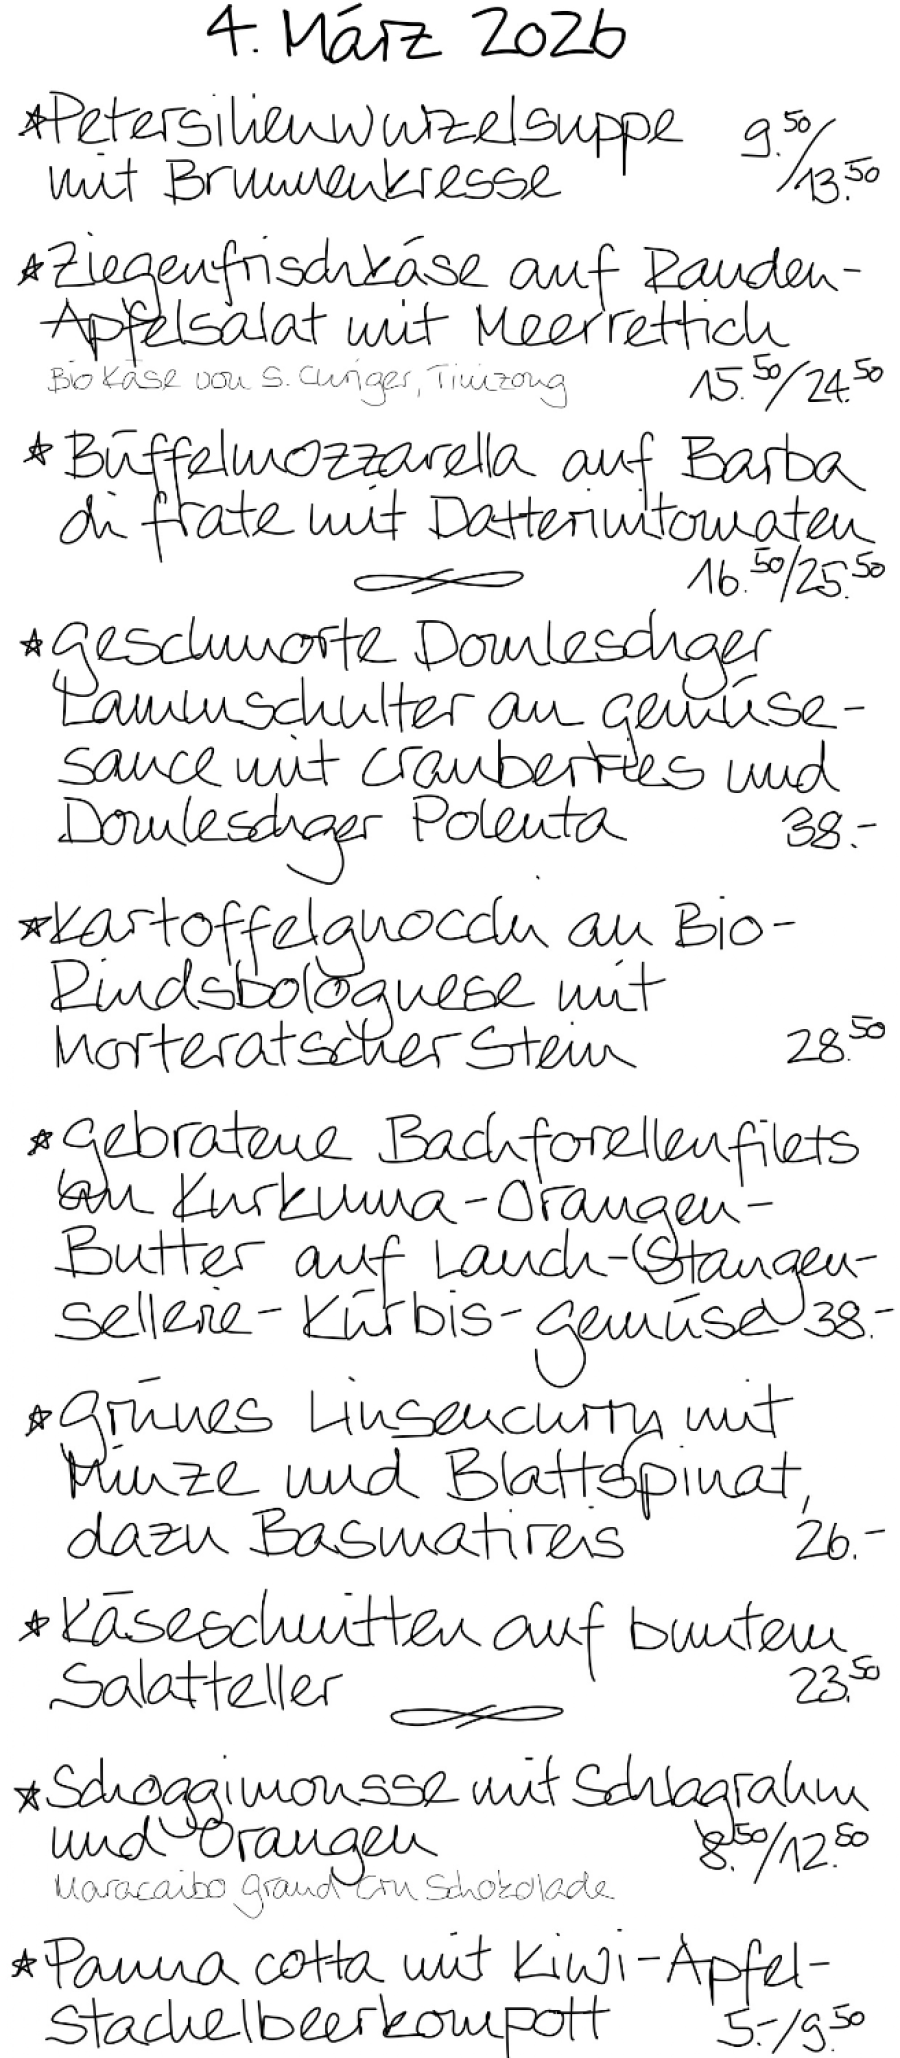 4. März 2026
*Petersilienwurzelsuppe 9.50/
mit Brunnenkresse 13.50
*Ziegenfrischkäse auf Randen-
Apfelsalat mit Meerrettich
Bio Käse von S. Curiger, Tinizong 15.50/24.50
*Büffelmozzarella auf Barba
di frate mit Datterinitomaten
16.50/25.50
*geschmorte Domleschger
Lammschulter an gemüse-
sauce mit cranberries und
Domleschger Polenta 38.-
*Kartoffelgnocchi an Bio-
Rindsbolognese mit
Morteratscher Stein 28.50
*gebratene Bachforellenfilets
an Kurkuma-Orangen-
Butter auf Lauch-Stangen-
sellerie-Kürbis-gemüse 38.-
*grünes Linsencurry mit
Minze und Blattspinat,
dazu Basmatireis 26.-
*Käseschnitten auf buntem
Salatteller 23.50
*Schoggimousse mit Schlagrahm
und Orangen 8.50/12.50
Maracaibo grand Cru Schokolade
*Panna cotta mit Kiwi-Apfel-
Stachelbeerkompott 5.-/9.50